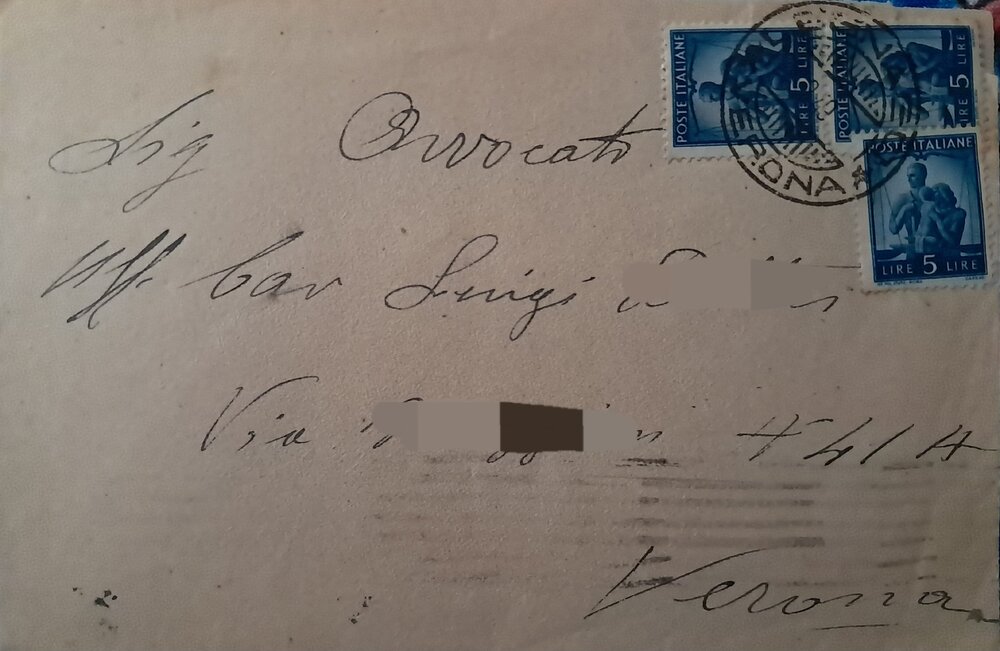 POSTE ITALIANE
5 LIRE
POSTE ITALIANE
LIRE 5 LIRE
POSTE ITALIANE
LIRE 5 LIRE
Sig Avvocato
Uff. Cav Luigi
Via 41A
Verona